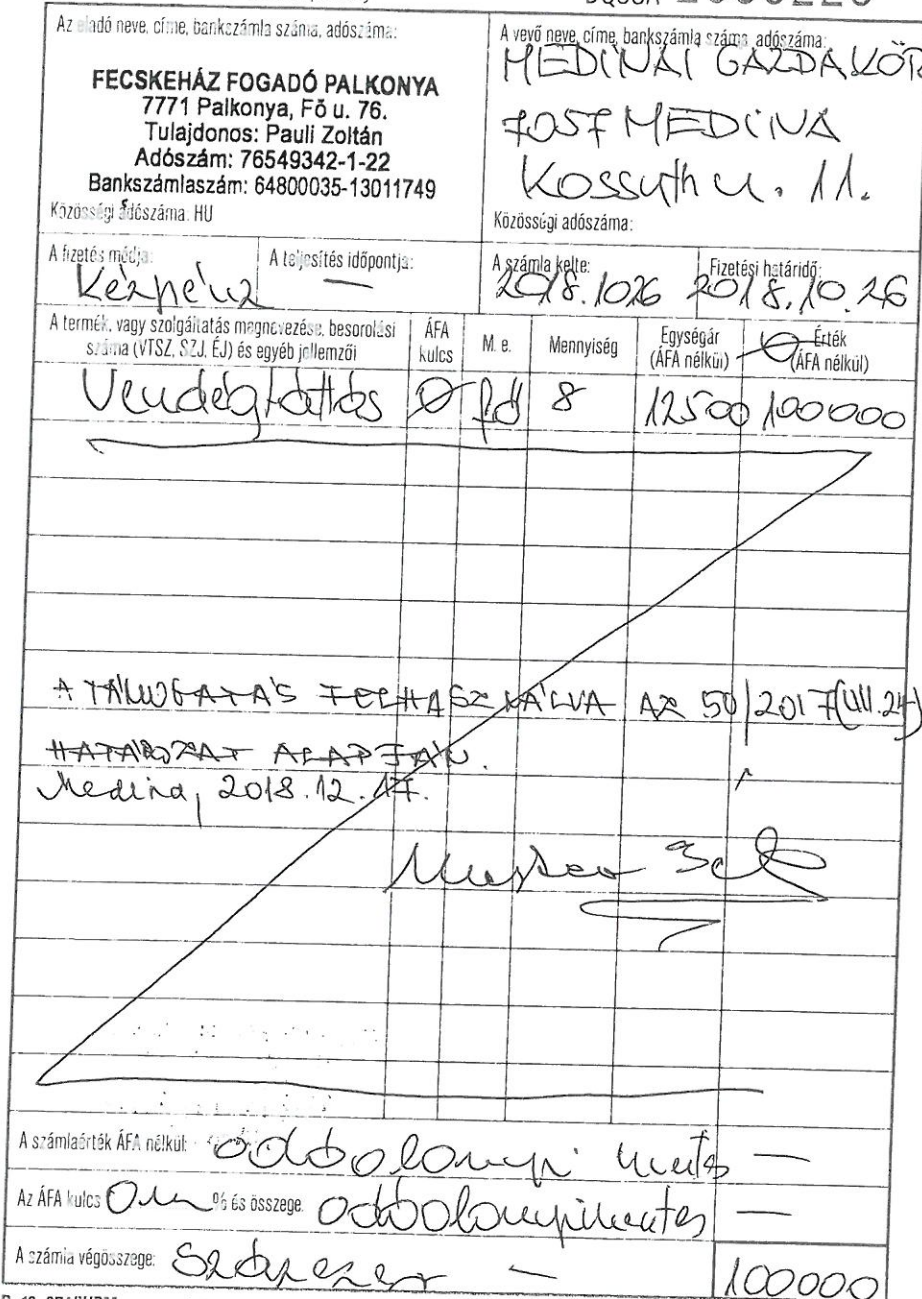 Az eladó neve, címe, bankszámla száma, adószáma:
FECSKEHÁZ FOGADÓ PALKONYA
7771 Palkonya, Fő u. 76.
Tulajdonos: Pauli Zoltán
Adószám: 76549342-1-22
Bankszámlaszám: 64800035-13011749
Közösségi adószáma: HU
A vevő neve, címe, bankszámla száma, adószáma:
MEDINAI GAZDAKÖR
7057 MEDINA
Kossuth u. 11.
Közösségi adószáma:
A fizetés módja:
Készpénz
A teljesítés időpontja:
—
A számla kelte:
2018.1026
Fizetési határidő:
2018.10.26
A termék, vagy szolgáltatás megnevezése, besorolási száma (VTSZ, SZJ, ÉJ) és egyéb jellemzői
ÁFA kulcs
M. e.
Mennyiség
Egységár (ÁFA nélkül)
Érték (ÁFA nélkül)
Vendéglátás Ø fő 8 12500 100000
A TÁMOGATÁS FELHASZNÁLVA AZ 50/2017(VIII.24)
HATÁROZAT ALAPJÁN.
Medina, 2018.12.17.
A számlaérték ÁFA nélkül: —
Az ÁFA kulcs % és összege: —
A számla végösszege: Százezer — 100000